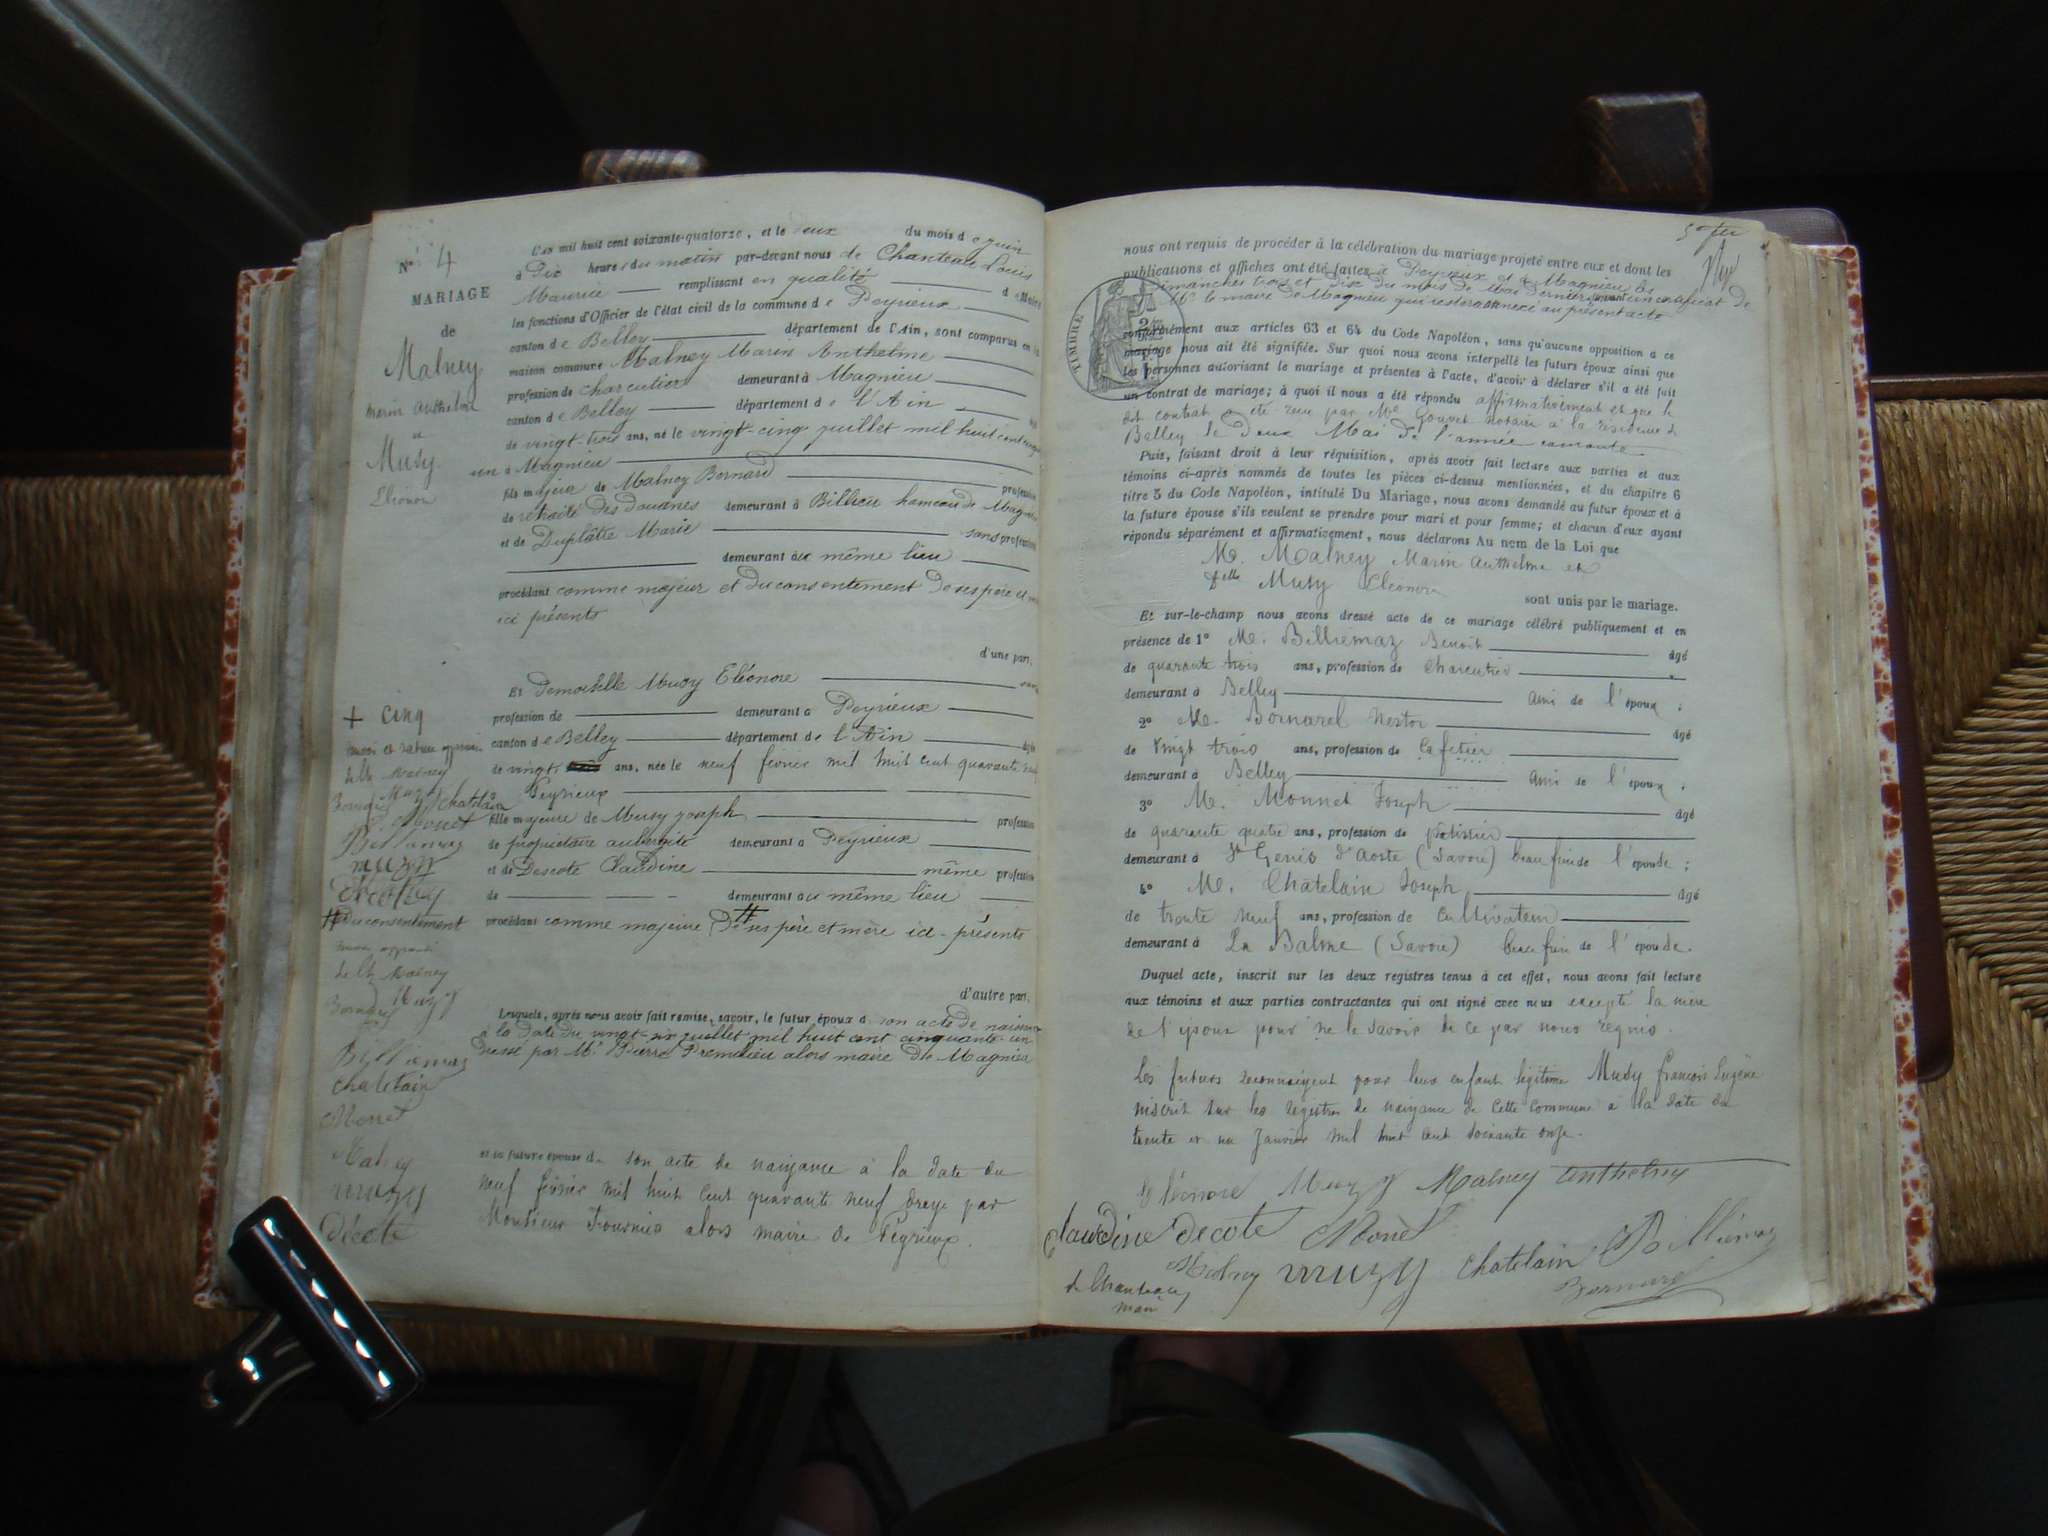 No 4
MARIAGE
de
Malney
Marin Anthelme
et
Musy
Eléonore
L'an mil huit cent soixante-quatorze, et le deux du mois de juin
à Dix heures du matin par-devant nous de Chanteau Louis
Maurice remplissant en qualité de Maire
les fonctions d'Officier de l'état civil de la commune de Peyrieux
canton de Belley département de l'Ain, sont comparus en la
maison commune Malney Marin Anthelme
profession de charcutier demeurant à Magnieu
canton de Belley département de l'Ain
de vingt-trois ans, né le vingt-cinq juillet mil huit cent cinquante
un à Magnieu
fils majeur de Malney Bernard profession
de retraité des Douanes demeurant à Billieu hameau de Magnieu
et de Duplâtre Marie sans profession
demeurant au même lieu
procédant comme majeur et du consentement de ses père et mère
ici présents
d'une part,
Et Demoiselle Musy Eléonore
profession de demeurant à Peyrieux
canton de Belley département de l'Ain âgée
de vingt ans, née le neuf février mil huit cent quarante neuf
à Peyrieux
fille majeure de Musy joseph profession
de propriétaire aubergiste demeurant à Peyrieux
et de Descote Claudine même profession
de demeurant au même lieu
procédant comme majeure De ses père et mère ici-présents
d'autre part,
Lesquels, après nous avoir fait remise, savoir, le futur époux d son acte de naissance
à la date du vingt-six juillet mil huit cent cinquante-un
Dressé par Mr Pierre Premilieu alors maire de Magnieu
et la future épouse de son acte de naissance à la date du
neuf février mil huit cent quarante neuf dressé par
Monsieur Fournier alors maire de Peyrieux.
+ cinq
de Ch Malney
Musy Chatelain
Monet
Billiemaz
muzy
Décote
# Du consentement
de Ch Malney
Muzy
Billiemaz
Chatelain
Monet
Malney
muzy
Décote
nous ont requis de procéder à la célébration du mariage projeté entre eux et dont les
publications et affiches ont été faites à Peyrieux et à Magnieu les
Dimanches trois et Dix du mois de Mai Dernier suivant un certificat de
Mr le maire de Magnieu qui restera annexé au présent acte
TIMBRE
conformément aux articles 63 et 64 du Code Napoléon, sans qu'aucune opposition a ce
mariage nous ait été signifiée. Sur quoi nous avons interpellé les futurs époux ainsi que
les personnes autorisant le mariage et présentes à l'acte, d'avoir à déclarer s'il a été fait
un contrat de mariage; à quoi il nous a été répondu affirmativement et que le
dit contrat a été reçu par Me Gouvet notaire à la résidence de
Belley le Deux Mai de l'année courante
Puis, faisant droit à leur réquisition, après avoir fait lecture aux parties et aux
témoins ci-après nommés de toutes les pièces ci-dessus mentionnées, et du chapitre 6
titre 5 du Code Napoléon, intitulé Du Mariage, nous avons demandé au futur époux et à
la future épouse s'ils veulent se prendre pour mari et pour femme; et chacun d'eux ayant
répondu séparément et affirmativement, nous déclarons Au nom de la Loi que
M. Malney Marin Anthelme et
Delle Musy Eléonore
sont unis par le mariage.
Et sur-le-champ nous avons dressé acte de ce mariage célébré publiquement et en
présence de 1° M. Billiemaz Benoit âgé
de quarante trois ans, profession de Charcutier
demeurant à Belley Ami de l'époux ;
2° M. Bornarel Nestor âgé
de Vingt trois ans, profession de Cafetier
demeurant à Belley Ami de l'époux ;
3° M. Monnet Joseph âgé
de quarante quatre ans, profession de patissier
demeurant à St Genis d'Aoste (Savoie) beau frère de l'épouse ;
4° M. Chatelain Joseph âgé
de trente neuf ans, profession de Cultivateur
demeurant à La Balme (Savoie) beau frère de l'épouse.
Duquel acte, inscrit sur les deux registres tenus à cet effet, nous avons fait lecture
aux témoins et aux parties contractantes qui ont signé avec nous excepté la mère
de l'époux pour ne le savoir de ce par nous requis.
Les futurs reconnaissent pour leur enfant légitime Musy François Eugène
inscrit sur les registres de naissance de cette commune à la date du
trente et un Janvier mil huit cent soixante onze.
Eléonore Muzy Malney Anthelme
Claudine Decote Monet
Malney muzy Chatelain Billiemaz
de Chanteau
maire